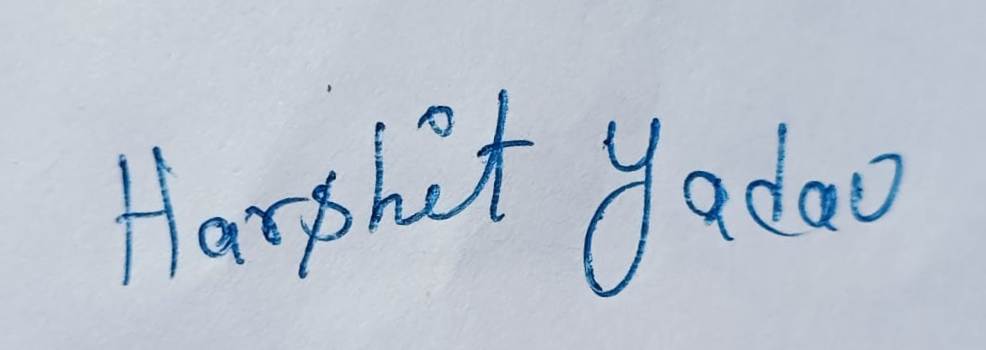 Harshit Yadav